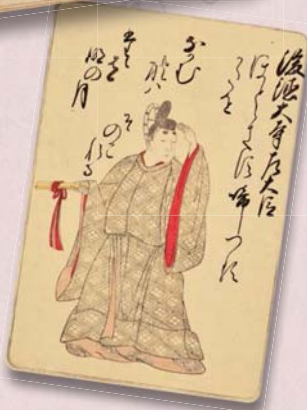 後徳大寺左大臣
ほとゝきす啼つる
かたを
なかむ
れハ
たゝ有
明の月
そ
のこれる